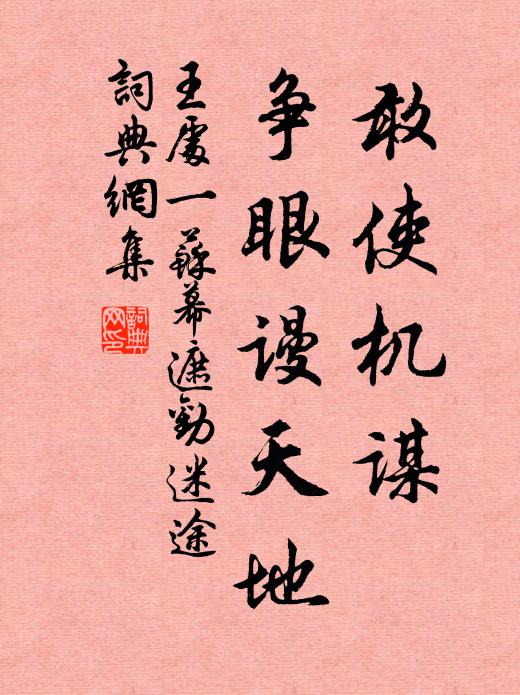 敢使机谋
争眼谩天地
王處一蘇幕遮勸迷途
詞典網集
詞典網印